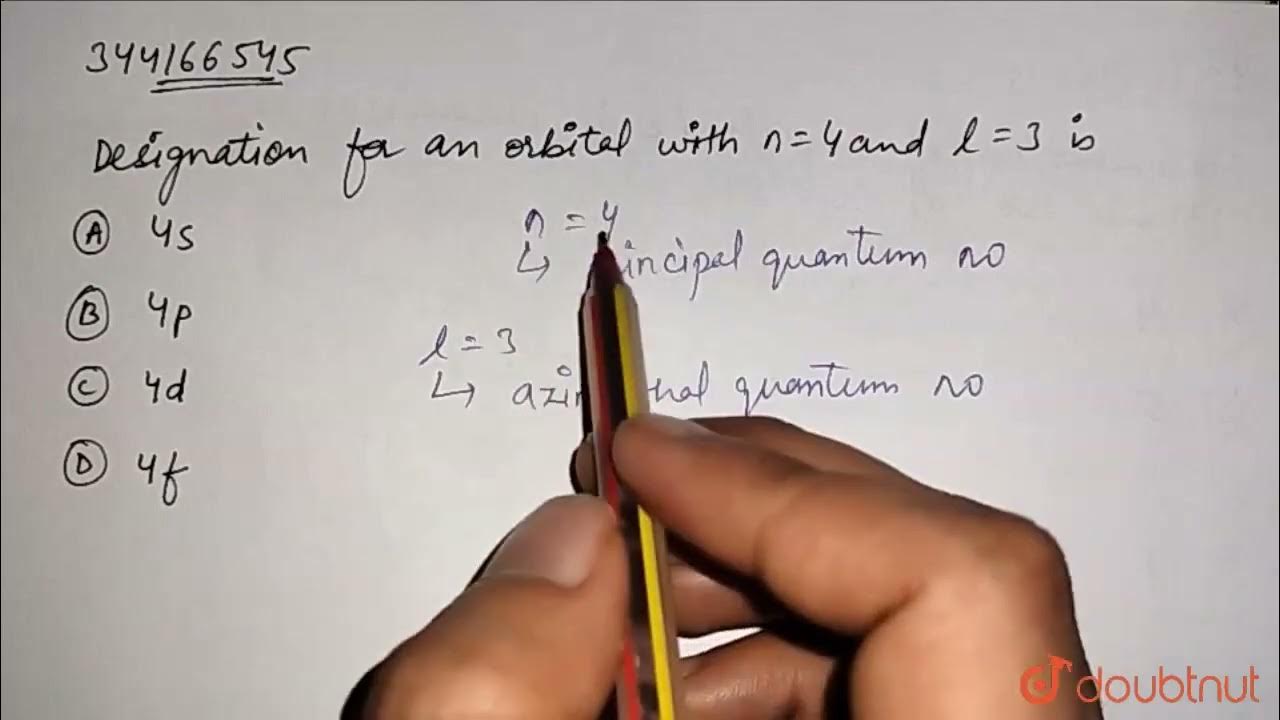 344166545
Designation for an orbital with n=4 and l=3 is
(A) 4s
n = 4
↳ quantum no
(B) 4p
l = 3
(C) 4d
↳ quantum no
(D) 4f
doubtnut